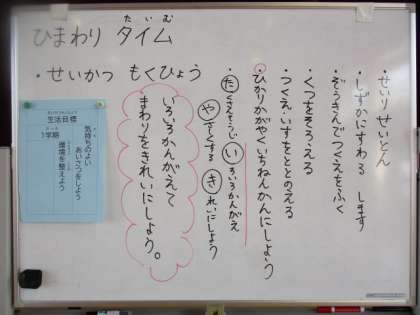 ひまわり タイム
たいむ
・せいかつ もくひょう
・せいりせいとん
・しずかにすわる します
・ぞうきんでつくえをふく
・くつをそろえる
・つくえ・いすをととのえる
・ひかりかがやくいちねんかんにしよう
たくさんそうじ
いろいろかんがえ
やさしくする
きれいにしよう
いろいろかんがえて
まわりをきれいにしよう。
生活目標
1学期
気持ちのよい
あいさつをしよう
環境を整えよう